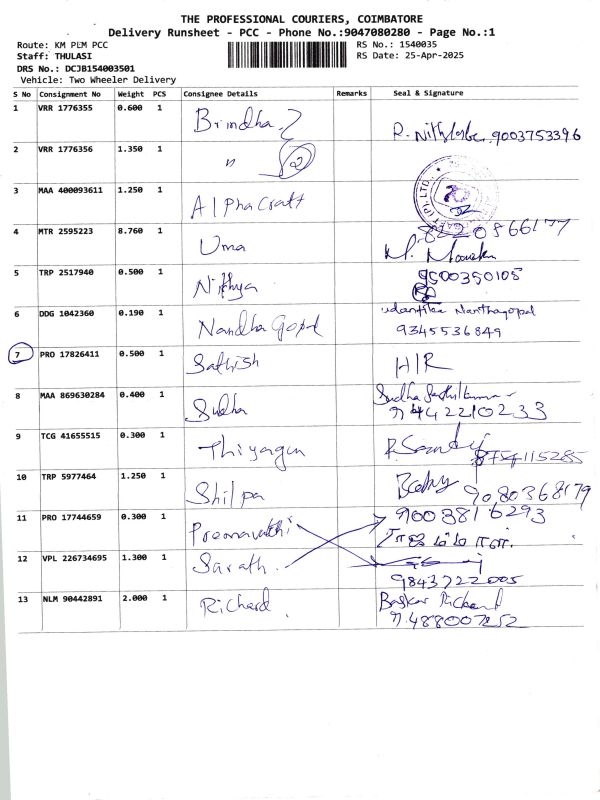 THE PROFESSIONAL COURIERS, COIMBATORE
Delivery Runsheet - PCC - Phone No.:9047080280 - Page No.:1
Route: KM PEM PCC
RS No.: 1540035
Staff: THULASI
RS Date: 25-Apr-2025
DRS No.: DCJB154003501
Vehicle: Two Wheeler Delivery
S No Consignment No Weight PCS Consignee Details Remarks Seal & Signature
1 VRR 1776355 0.600 1 Brindha. 9003753396
2 VRR 1776356 1.350 1 " 2
3 MAA 400093611 1.250 1 Alpha Craft
4 MTR 2595223 8.760 1 Uma
5 TRP 2517940 0.500 1 Nithya 9500350105
6 DDG 1042360 0.190 1 Nandha Gopal Nanthagopal
9345536849
7 PRO 17826411 0.500 1 Sathish H/R
8 MAA 869630284 0.400 1 Sudha Sudha
9442210233
9 TCG 41655515 0.300 1 Thiyagu 8754115285
10 TRP 5977464 1.250 1 Shilpa 9080368179
11 PRO 17744659 0.300 1 Premavathi 9003816293
12 VPL 226734695 1.300 1 Sarath. 9843722005
13 NLM 90442891 2.000 1 Richard Baskar Richard
9488007252